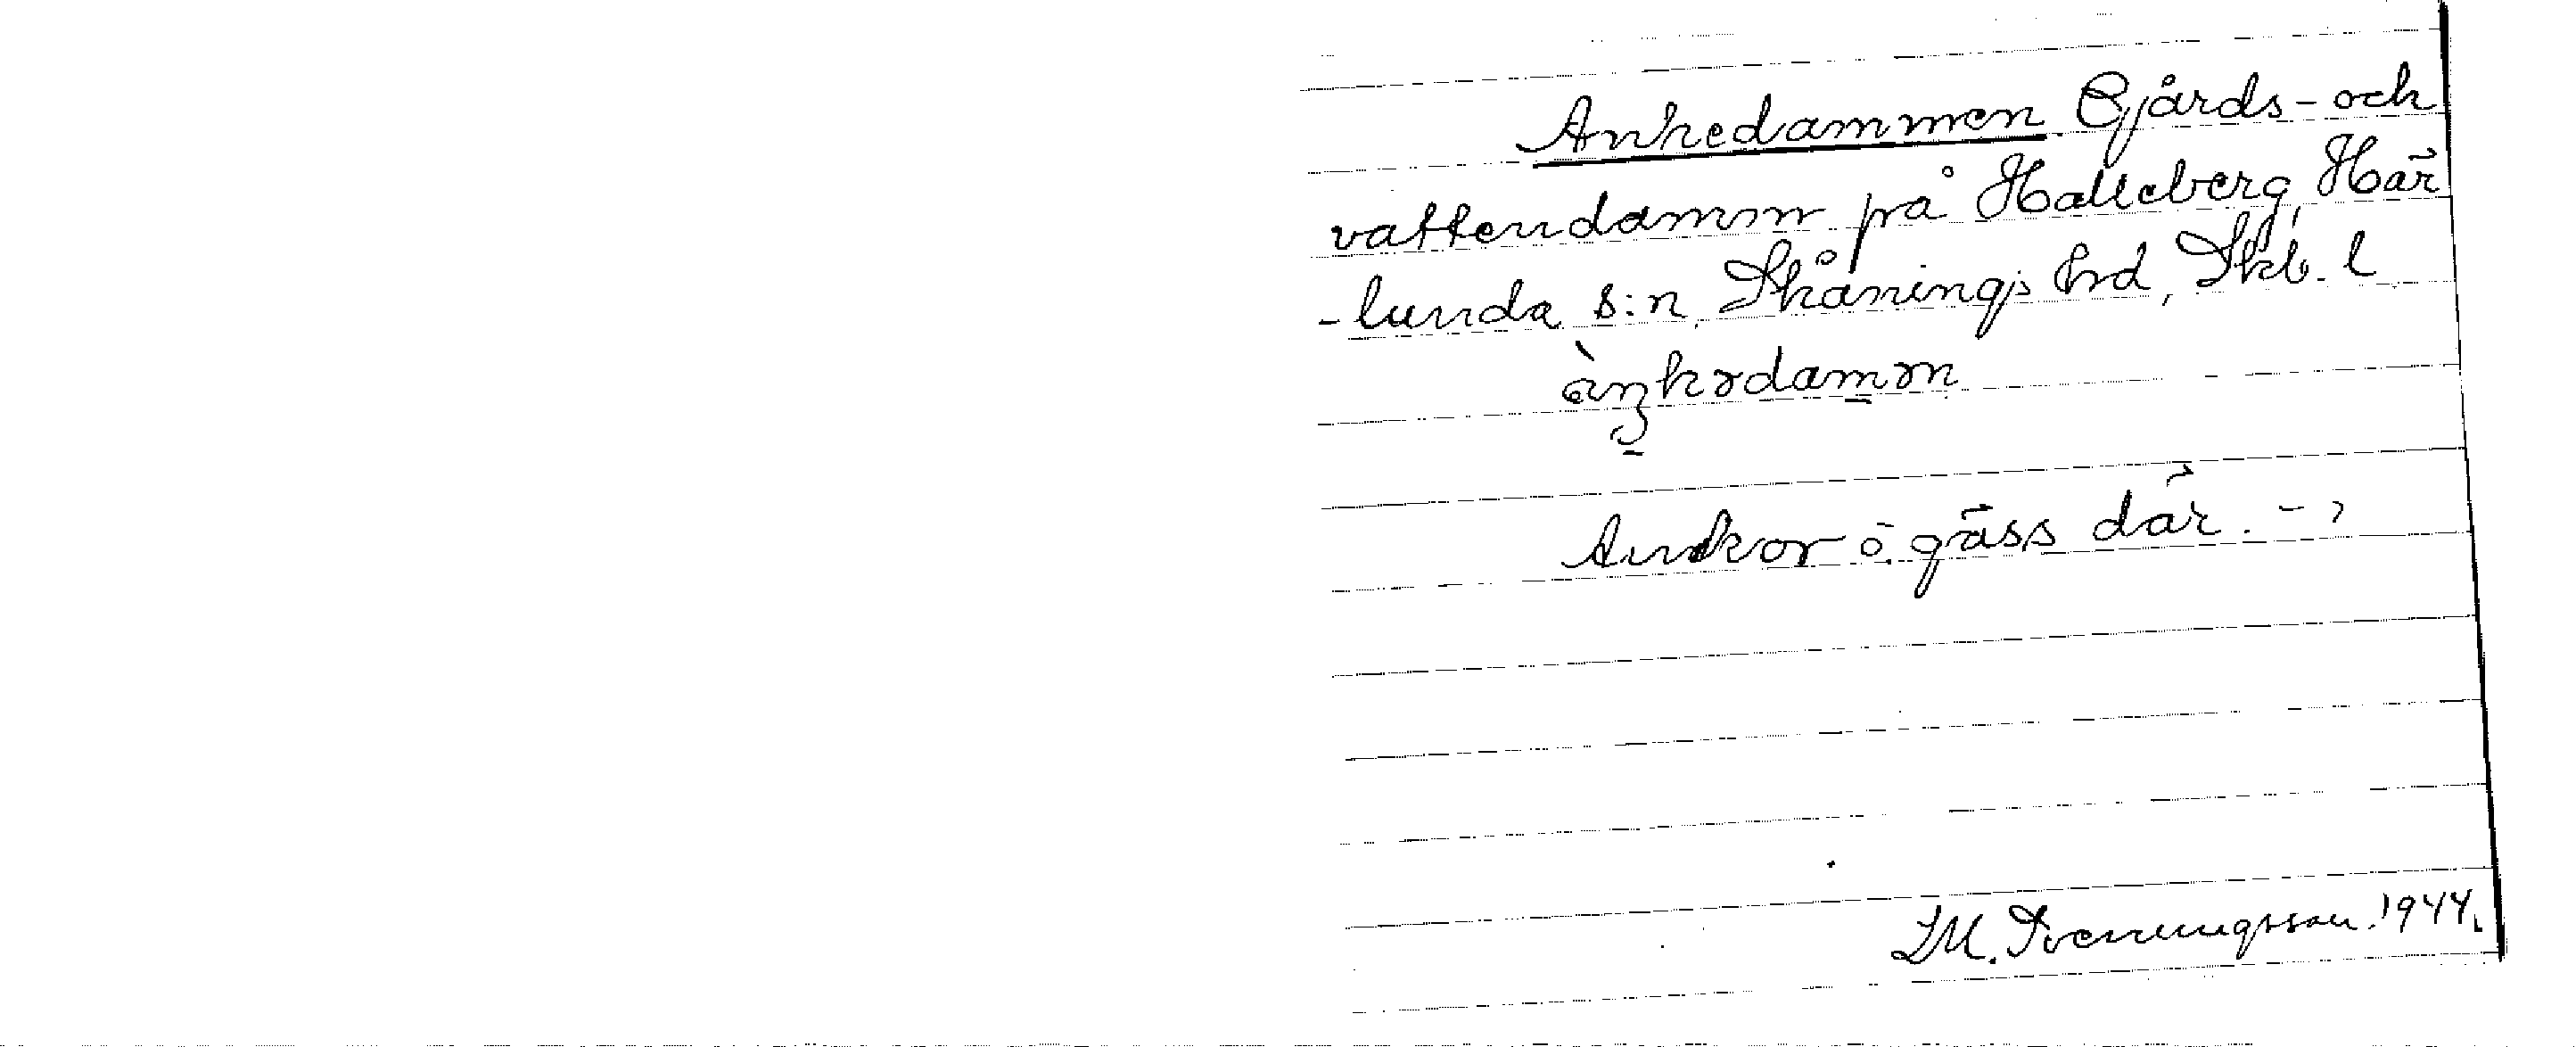 Ankedammen. Gjårds- och
vattendamm på Halleberg, Här
-lunda s:n, Skånings hrd, Skb. l
àŋkədamm
Ankor o. gäss där. -
S M. Svenningsson. 1944.